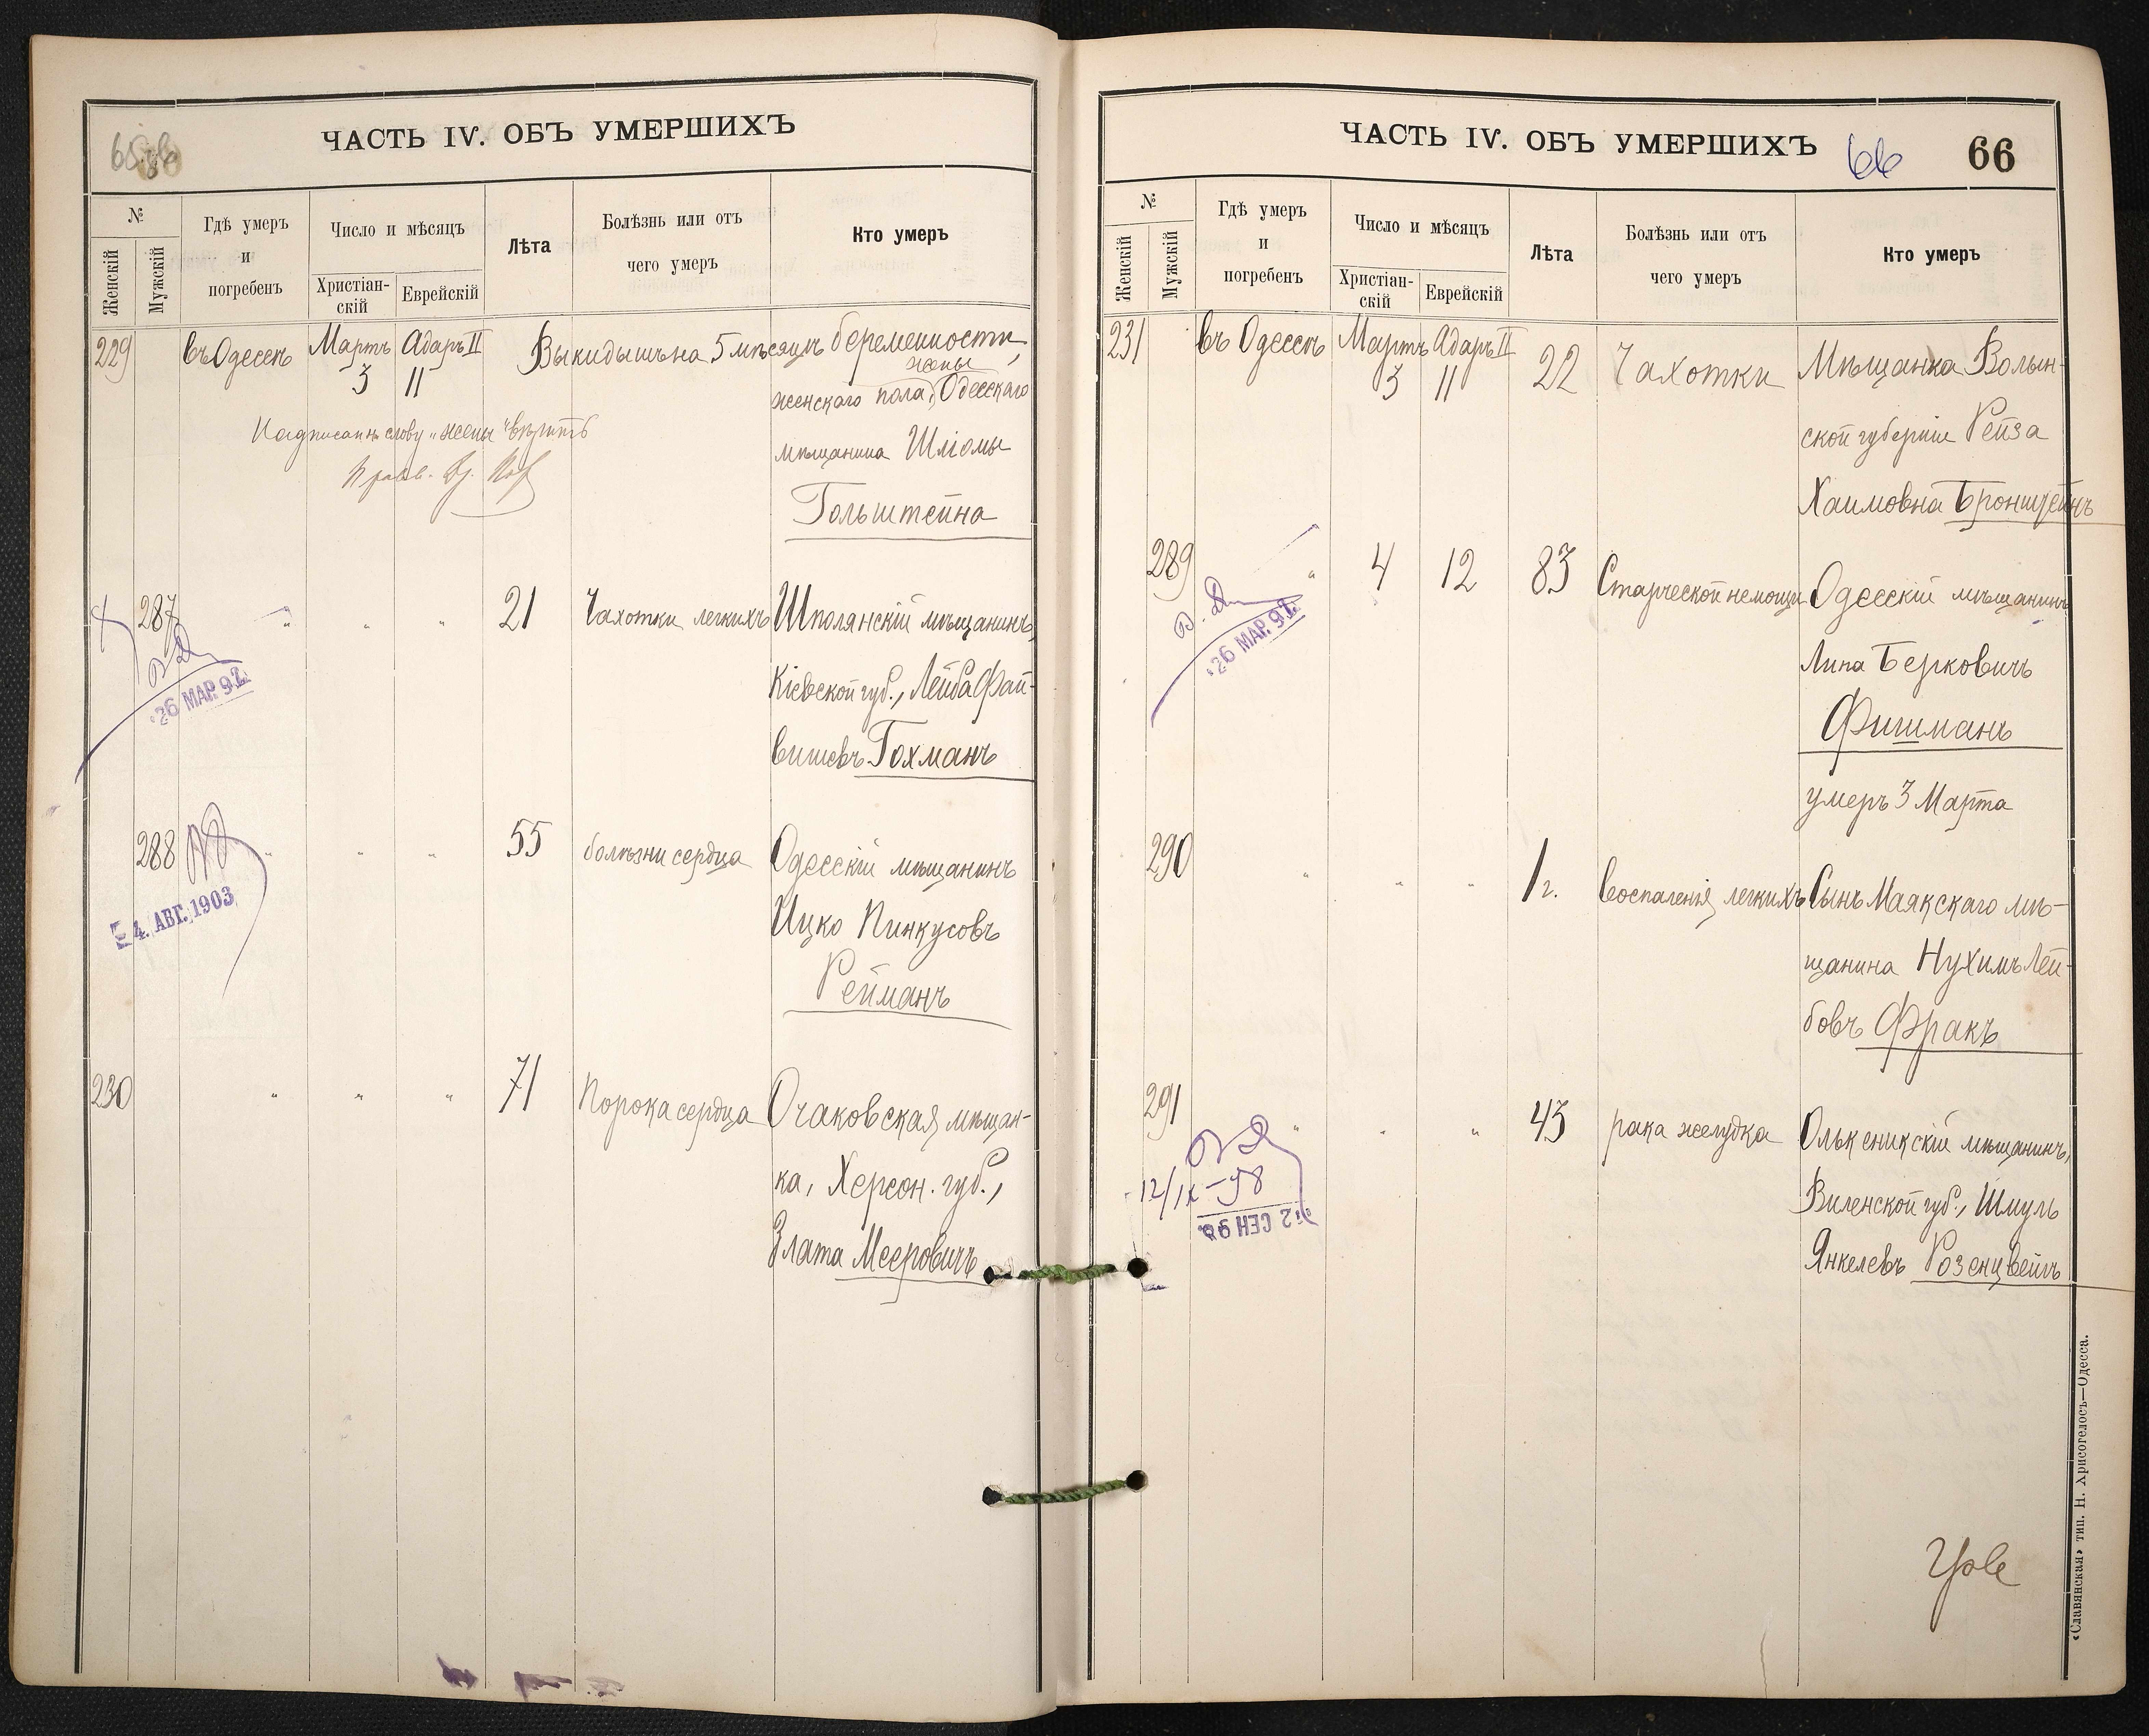 ЧАСТЬ IV. ОБЪ УМЕРШИХЪ
№
Женскій
Мужскій
Гдѣ умеръ
и
погребенъ
Число и мѣсяцъ
Христіан-
скій
Еврейскій
Лѣта
Болѣзнь или отъ
чего умеръ
Кто умеръ
229 въ Одессѣ Мартъ Адаръ II Выкидышъ на 5 мѣсяцѣ беременности,
3 11 жены
женскаго пола, Одесскаго
мѣщанина Шлiомы
Гольштейна
Надписанн. слову „жены" вѣрить
287 " " " 21 Чахотки легкихъ Шполянскій мѣщанинъ,
Кіевской губ., Лейба Фай-
вишевъ Гохманъ
26 МАР. 92.
288 " " " 55 болѣзни сердца Одесскій мѣщанинъ
Ицко Пинкусовъ
Рейманъ
4. АВГ. 1903
230 " " " 71 Порока сердца Очаковская мѣщан-
ка, Херсон. губ.,
Злата Мееровичъ
ЧАСТЬ IV. ОБЪ УМЕРШИХЪ 66 66
№
Женскій
Мужскій
Гдѣ умеръ
и
погребенъ
Число и мѣсяцъ
Христіан-
скій
Еврейскій
Лѣта
Болѣзнь или отъ
чего умеръ
Кто умеръ
231 въ Одессѣ Мартъ Адаръ II 22 Чахотки Мѣщанка Волын-
3 11
ской губерніи Рейза
Хаимовна Бронштейнъ
289 " 4 12 83 Старческой немощи Одесскій мѣщанинъ
Липа Берковичъ
Фишманъ
умеръ 3 Марта
26 МАР. 92.
290 " " " 1 г. Воспаленія легкихъ Сынъ Маякскаго мѣ-
щанина Нухимъ Лей-
бовъ Фракъ
291 " " " 43 рака желудка Олькеникскій мѣщанинъ,
Виленской губ., Шмуль
Янкелевъ Розенцвейгъ
12/IX-98
12 СЕН 98
«Славянская» тип. Н. Хрисогелосъ—Одесса.